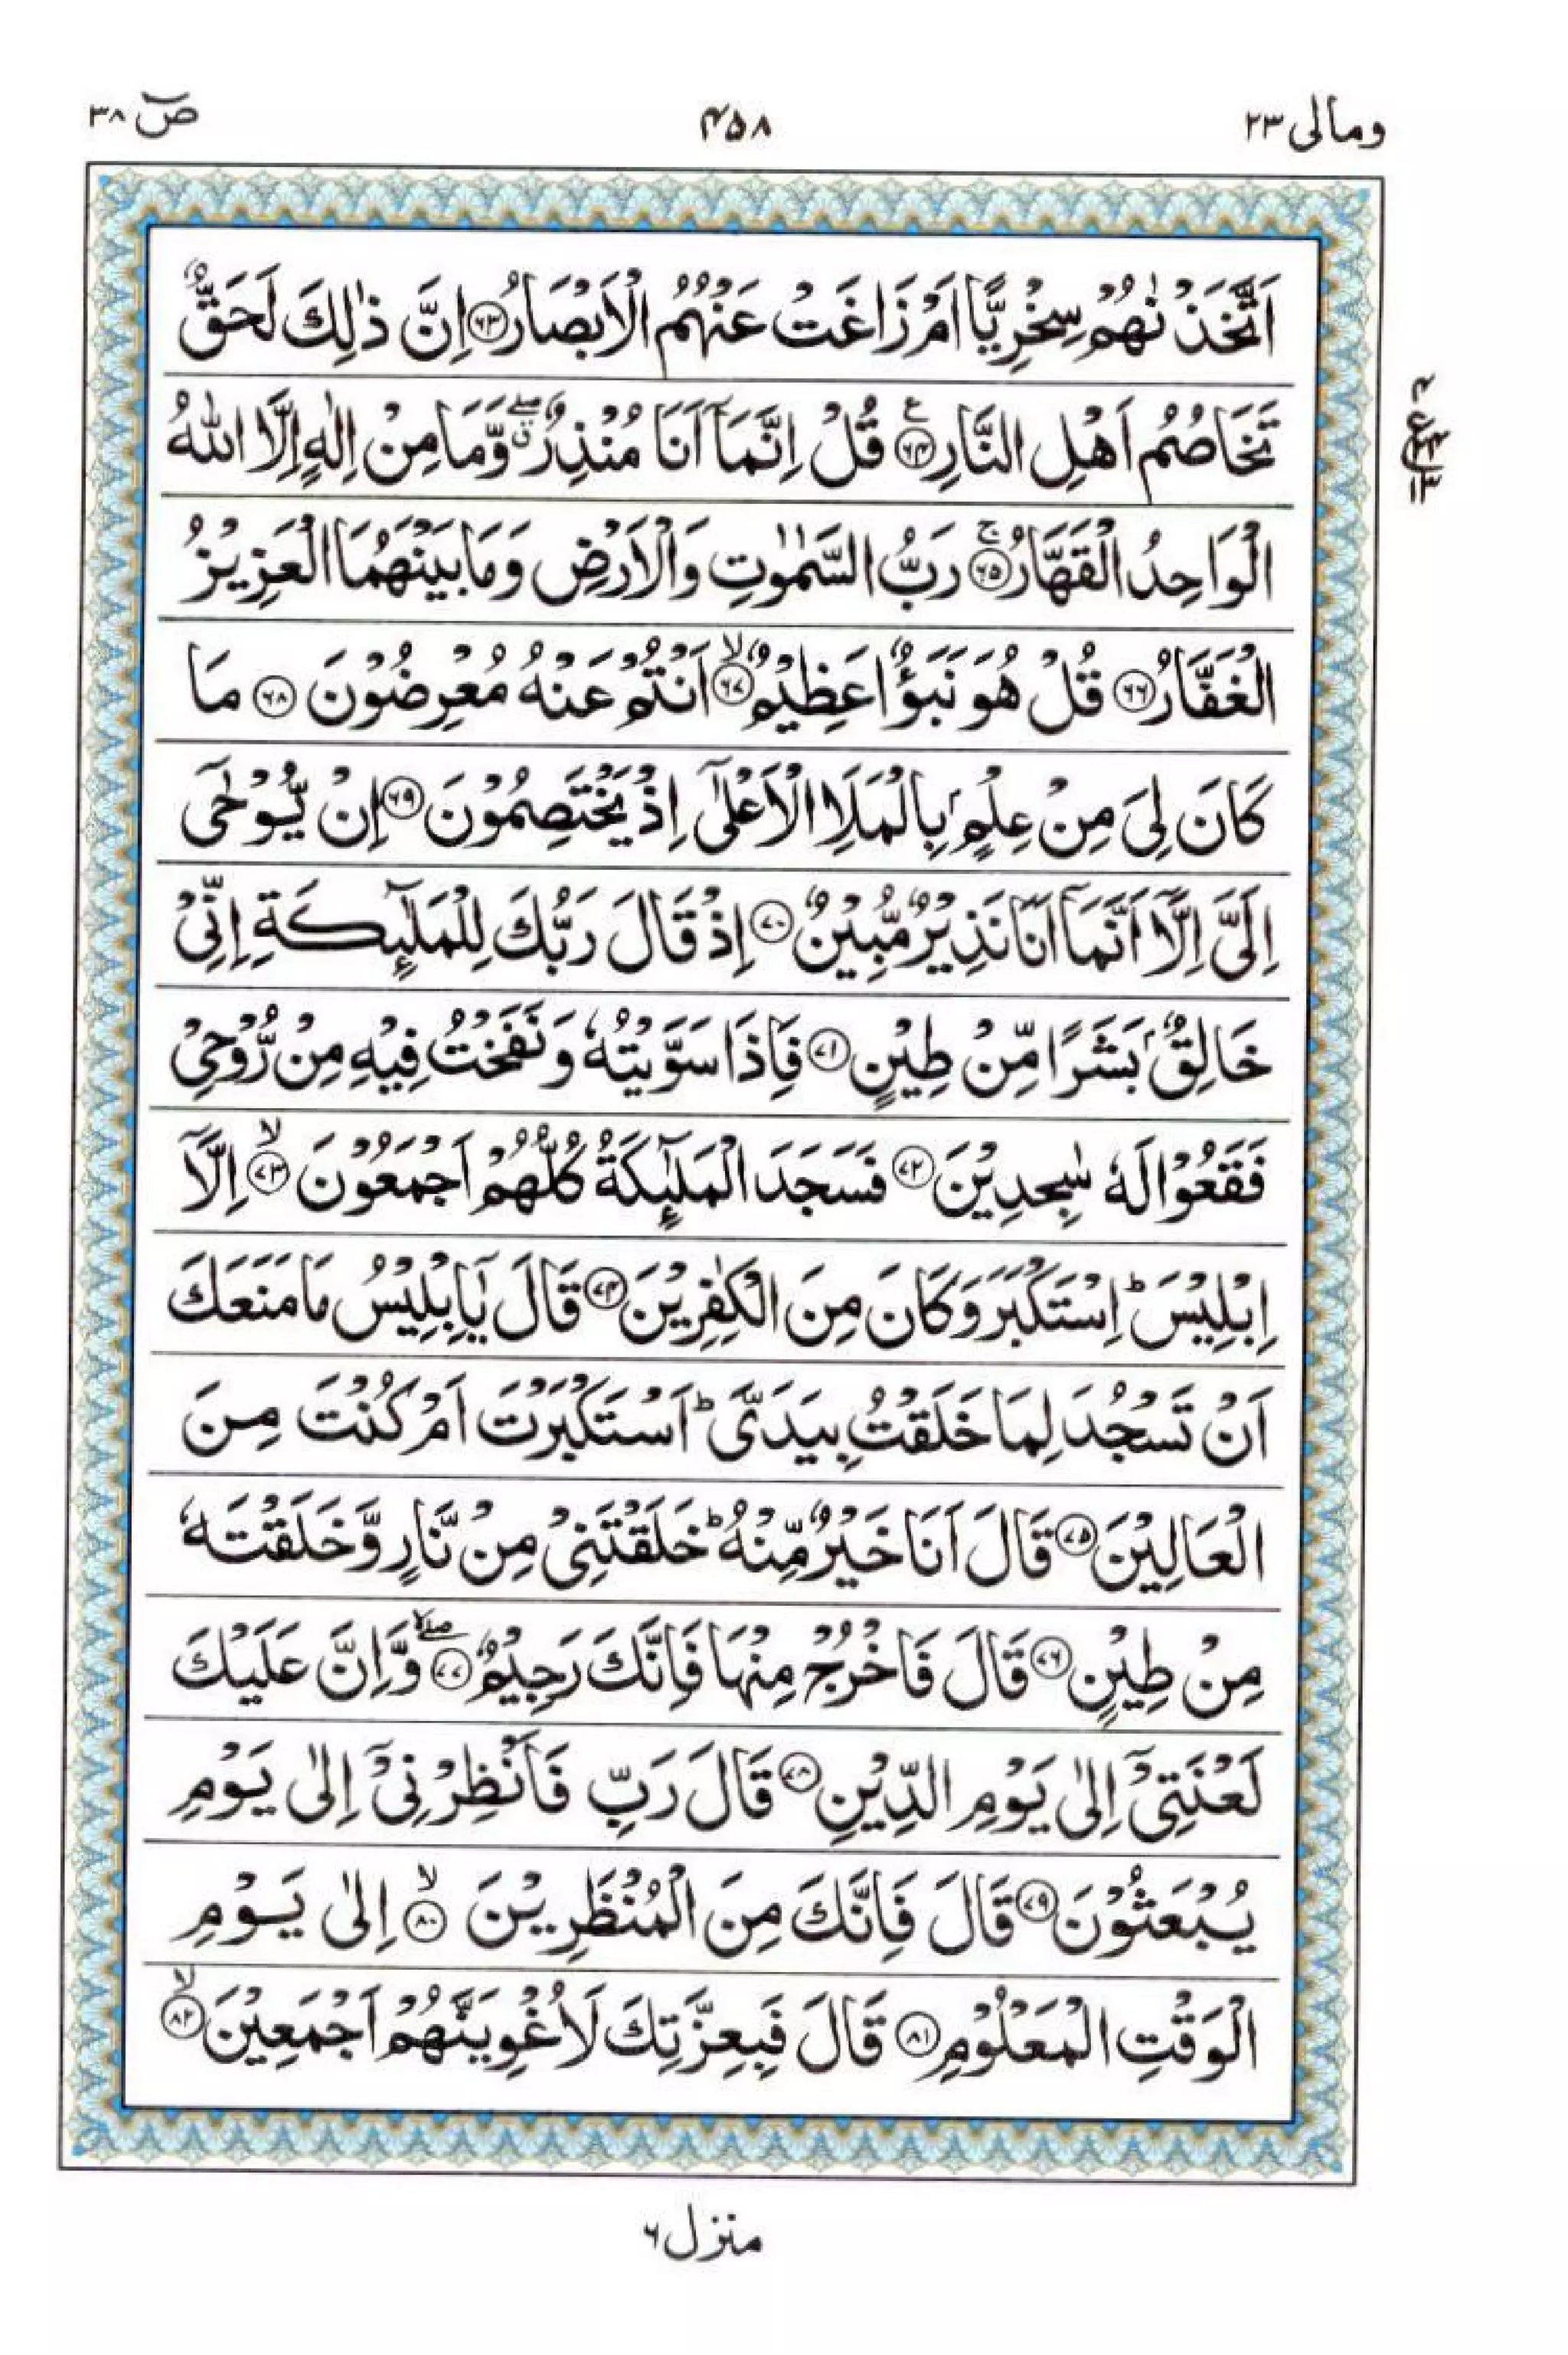 ومالی ۲۳
۴۵۸
صٓ ۳۸
اَتَّخَذْنٰهُمْ سِخْرِيًّا اَمْ زَاغَتْ عَنْهُمُ الْاَبْصَارُ ﴿۶۳﴾ اِنَّ ذٰلِكَ لَحَقٌّ
تَخَاصُمُ اَهْلِ النَّارِ ﴿۶۴﴾ ع قُلْ اِنَّمَاۤ اَنَا مُنْذِرٌ ۖۗ وَّمَا مِنْ اِلٰهٍ اِلَّا اللّٰهُ
الْوَاحِدُ الْقَهَّارُ ﴿۶۵﴾ ۚ رَبُّ السَّمٰوٰتِ وَالْاَرْضِ وَمَا بَيْنَهُمَا الْعَزِيْزُ
الْغَفَّارُ ﴿۶۶﴾ قُلْ هُوَ نَبَؤٌا عَظِيْمٌ ﴿۶۷﴾ ۙ اَنْتُمْ عَنْهُ مُعْرِضُوْنَ ﴿۶۸﴾ مَا
كَانَ لِيَ مِنْ عِلْمٍۭ بِالْمَلَاِ الْاَعْلٰۤى اِذْ يَخْتَصِمُوْنَ ﴿۶۹﴾ اِنْ يُّوْحٰۤى
اِلَيَّ اِلَّاۤ اَنَّمَاۤ اَنَا نَذِيْرٌ مُّبِيْنٌ ﴿۷۰﴾ اِذْ قَالَ رَبُّكَ لِلْمَلٰٓئِكَةِ اِنِّيْ
خَالِقٌۢ بَشَرًا مِّنْ طِيْنٍ ﴿۷۱﴾ فَاِذَا سَوَّيْتُهٗ وَنَفَخْتُ فِيْهِ مِنْ رُّوْحِيْ
فَقَعُوْا لَهٗ سٰجِدِيْنَ ﴿۷۲﴾ فَسَجَدَ الْمَلٰٓئِكَةُ كُلُّهُمْ اَجْمَعُوْنَ ﴿۷۳﴾ ۙ اِلَّاۤ
اِبْلِيْسَ ؕ اِسْتَكْبَرَ وَكَانَ مِنَ الْكٰفِرِيْنَ ﴿۷۴﴾ قَالَ يٰۤاِبْلِيْسُ مَا مَنَعَكَ
اَنْ تَسْجُدَ لِمَا خَلَقْتُ بِيَدَيَّ ؕ اَسْتَكْبَرْتَ اَمْ كُنْتَ مِنَ
الْعَالِيْنَ ﴿۷۵﴾ قَالَ اَنَا خَيْرٌ مِّنْهُ ؕ خَلَقْتَنِيْ مِنْ نَّارٍ وَّخَلَقْتَهٗ
مِنْ طِيْنٍ ﴿۷۶﴾ قَالَ فَاخْرُجْ مِنْهَا فَاِنَّكَ رَجِيْمٌ ﴿۷۷﴾ ۙۖ وَّاِنَّ عَلَيْكَ
لَعْنَتِيْۤ اِلٰى يَوْمِ الدِّيْنِ ﴿۷۸﴾ قَالَ رَبِّ فَاَنْظِرْنِيْۤ اِلٰى يَوْمِ
يُبْعَثُوْنَ ﴿۷۹﴾ قَالَ فَاِنَّكَ مِنَ الْمُنْظَرِيْنَ ﴿۸۰﴾ ۙ اِلٰى يَوْمِ
الْوَقْتِ الْمَعْلُوْمِ ﴿۸۱﴾ قَالَ فَبِعِزَّتِكَ لَاُغْوِيَنَّهُمْ اَجْمَعِيْنَ ﴿۸۲﴾ ۙ
منزل ۶